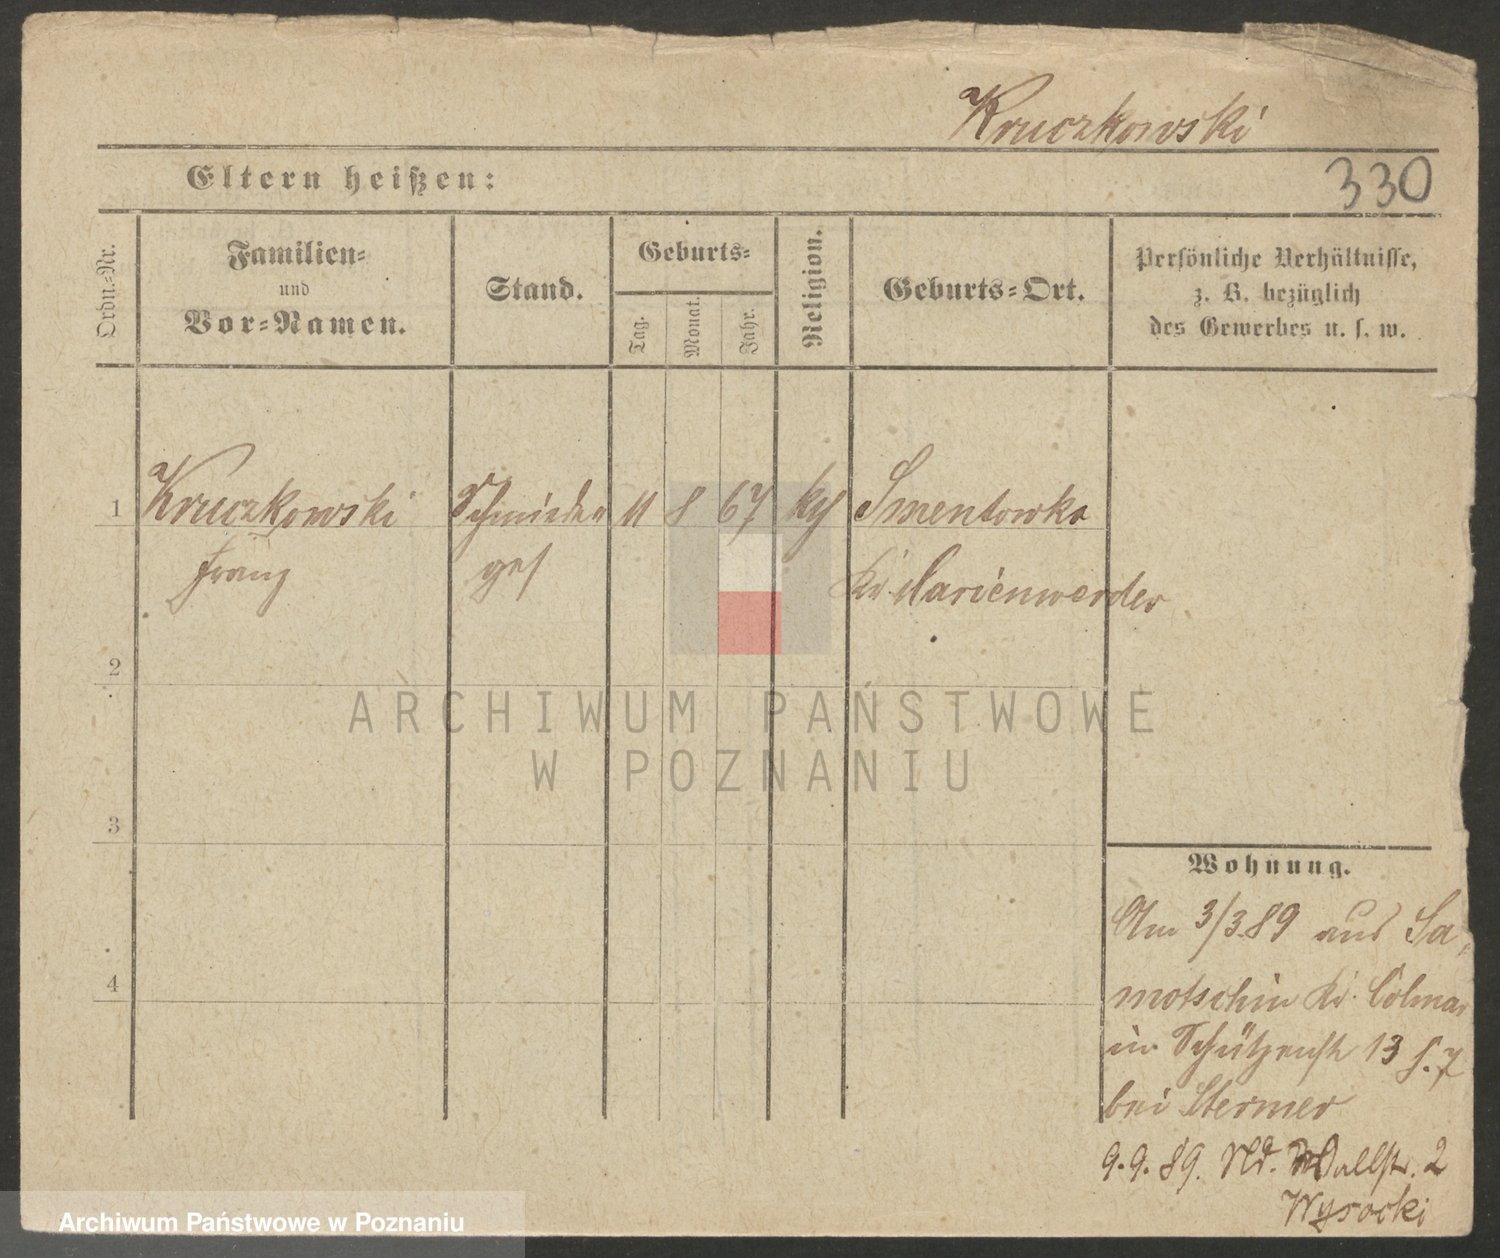 Kruczkowski
Eltern heißen:
330
Ordn.-Nr.
Familien-
und
Vor-Namen.
Stand.
Geburts-
Tag.
Monat.
Jahr.
Religion.
Geburts-Ort.
Persönliche Verhältnisse,
z. B. bezüglich
des Gewerbes u. s. w.
1 Kruczkowski Schmiede 11 8 67 Smentowko
Franz ges Kr Marienwerder
2
ARCHIWUM PAŃSTWOWE
W POZNANIU
3
Wohnung.
Am 3/3.89 aus Sa
motschin Kr. Colmar
in Schützenstr 13
bei Stermer
4
9.9.89. Wallstr. 2
Wysocki
Archiwum Państwowe w Poznaniu